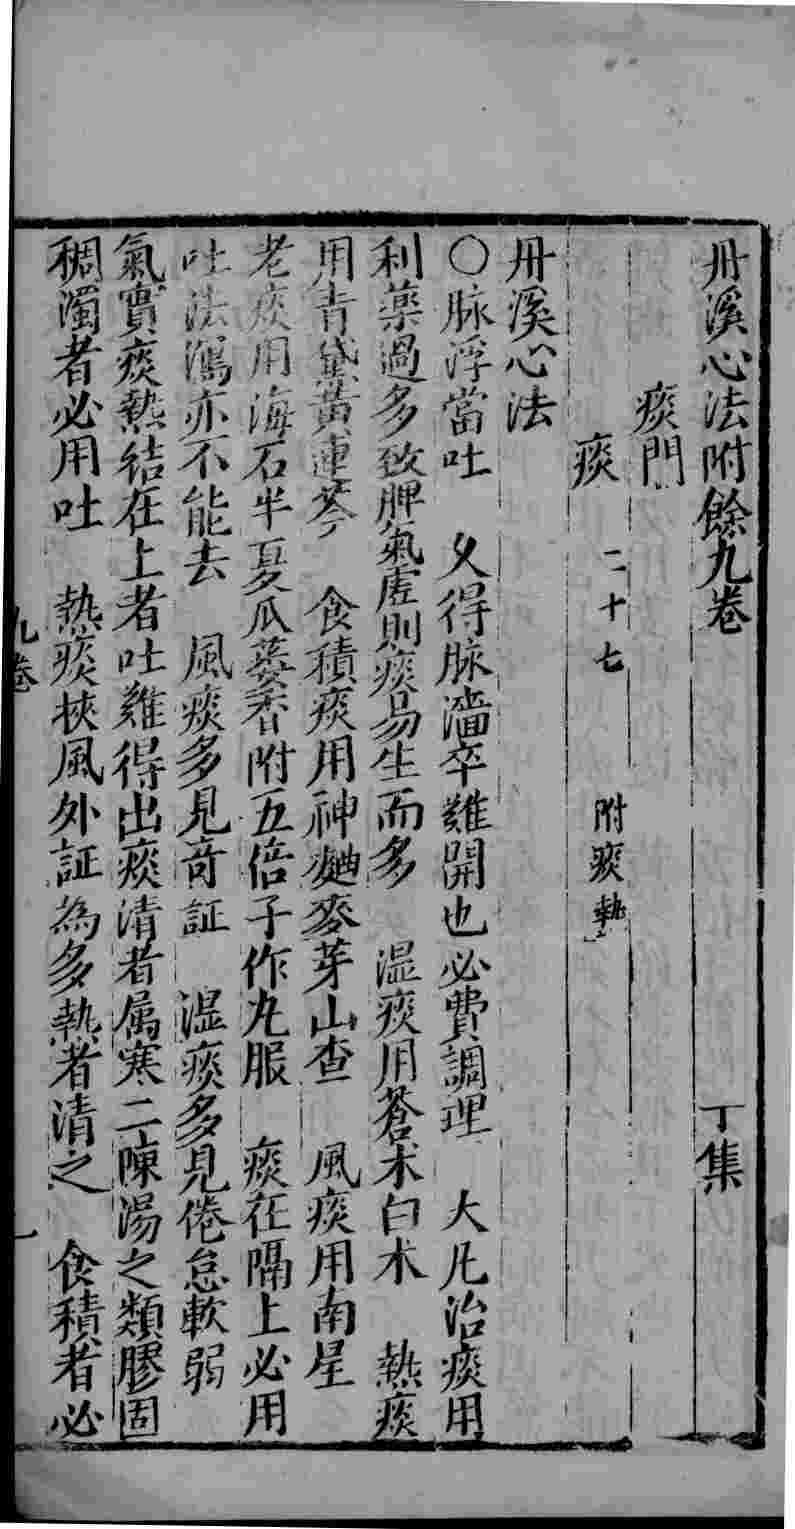 丹溪心法附餘九卷 丁集
痰門
痰 二十七 附痰熱
丹溪心法
○脉浮當吐 久得脉濇卒難開也必費調理 大凡治痰用
利藥過多致脾氣虛則痰易生而多 濕痰用蒼术白术 熱痰
用青黛黃連芩 食積痰用神麯麥芽山查 風痰用南星
老痰用海石半夏瓜蔞香附五倍子作丸服 痰在隔上必用
吐法瀉亦不能去 風痰多見竒証 濕痰多見倦怠軟弱
氣實痰熱結在上者吐難得出痰清者属寒二陳湯之類膠固
稠濁者必用吐 熱痰挾風外証為多熱者清之 食積者必
九卷 一